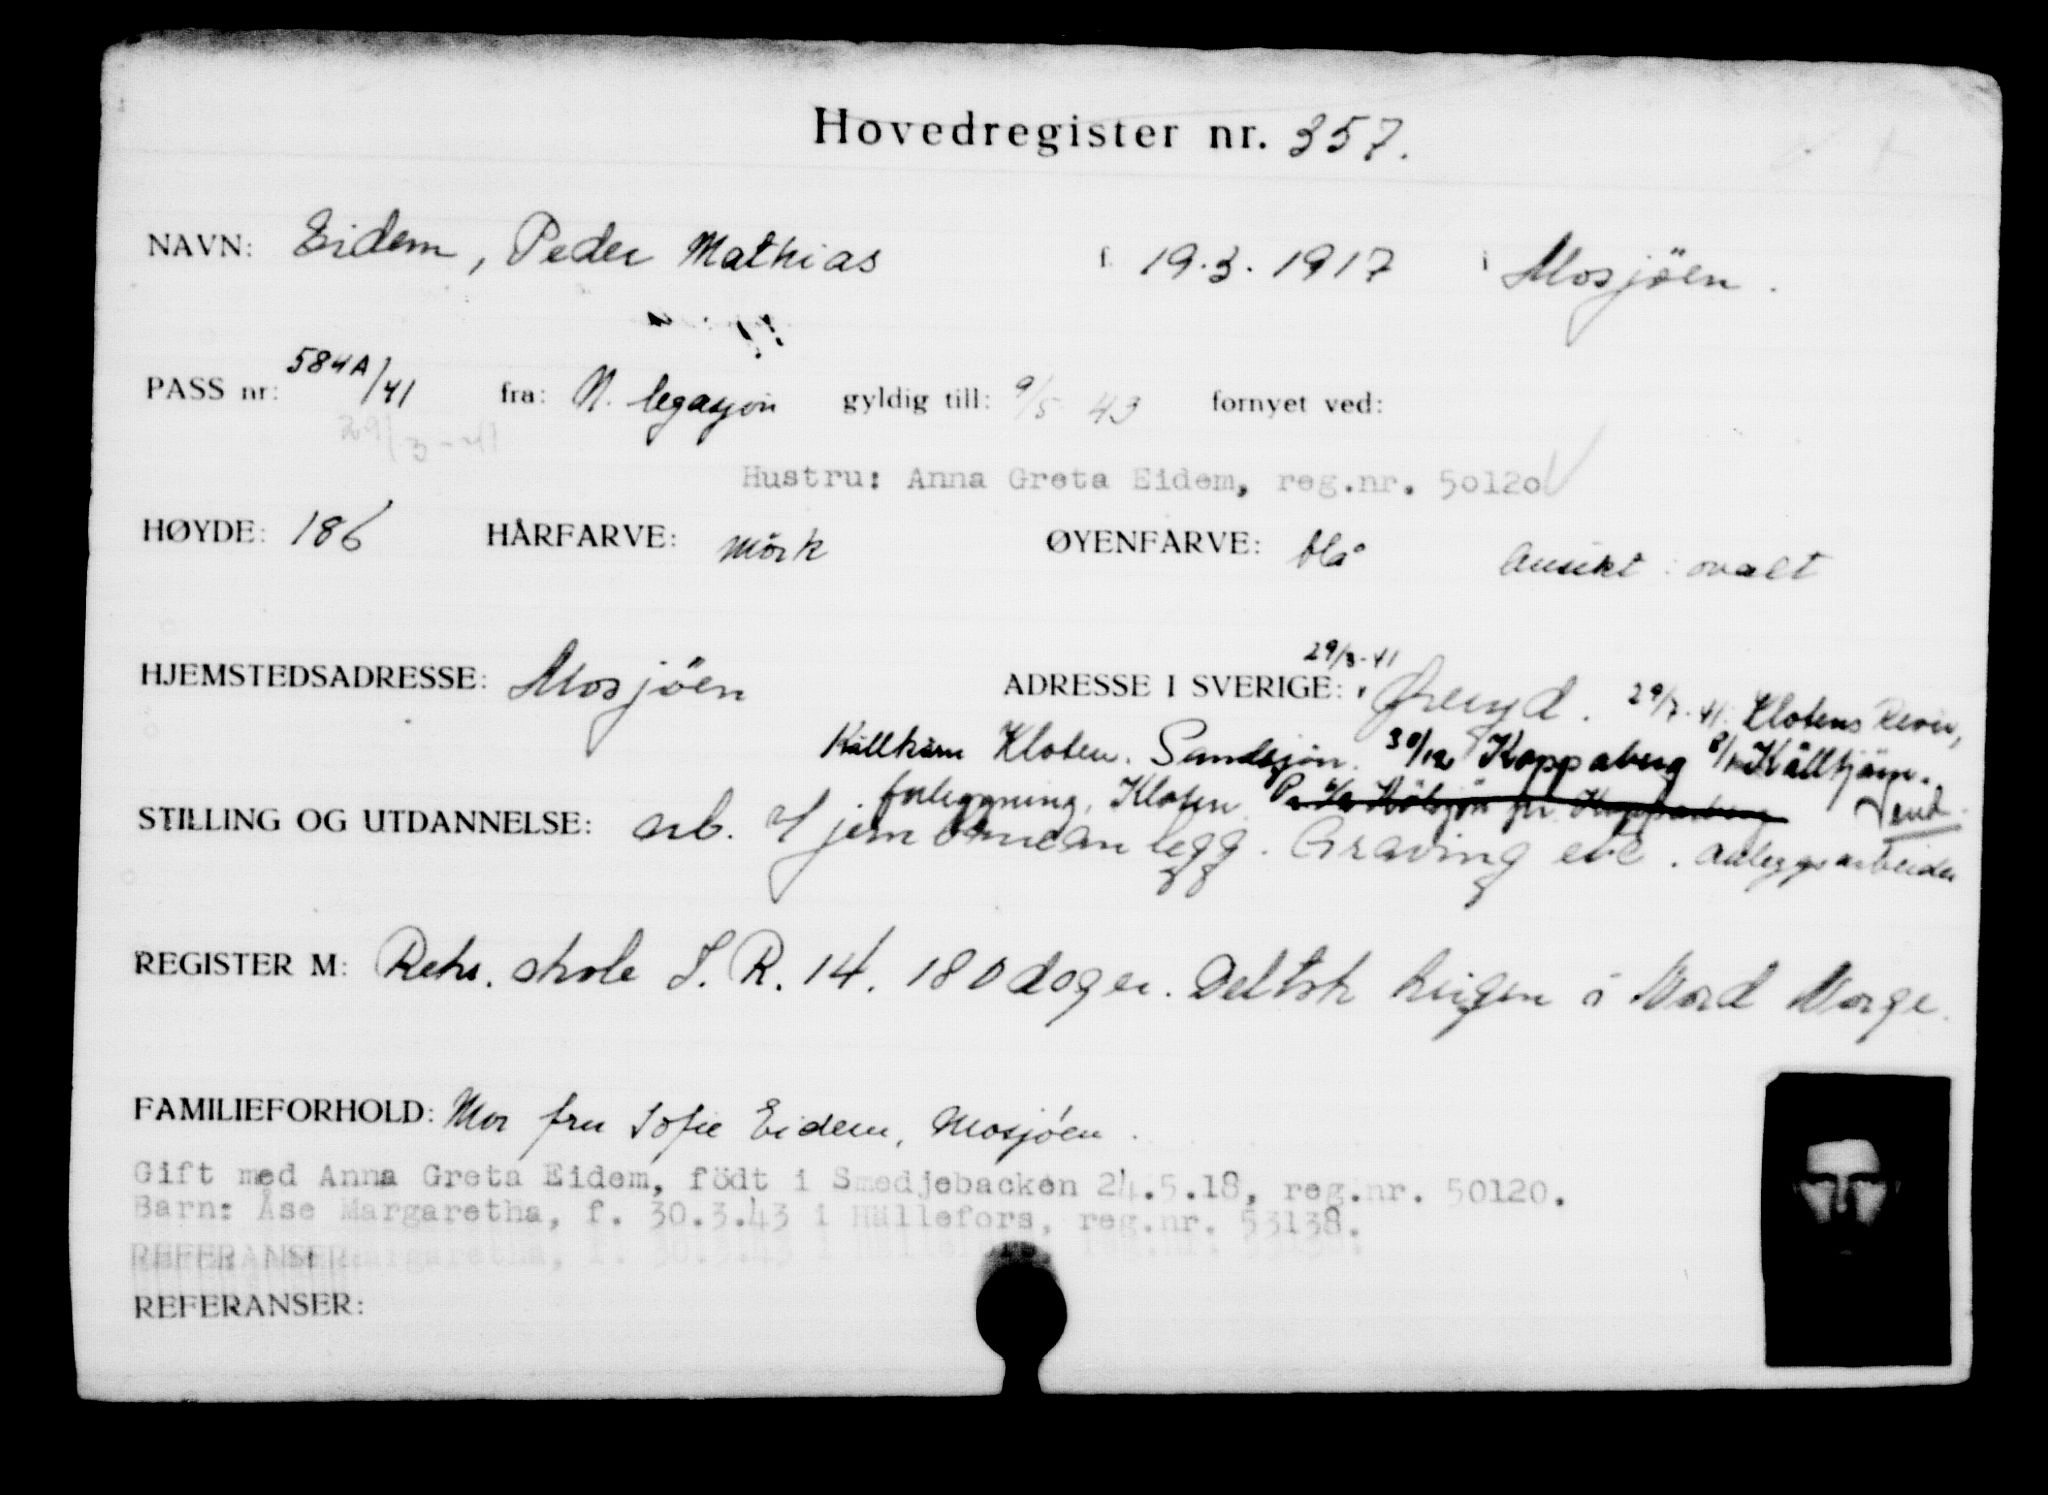 Hovedregister nr. 357.
NAVN: Eidem, Peder Mathias f. 19.3.1917 i Mosjöen.
PASS nr: 584A/41 fra: N. legasjon gyldig till: 9/5 43 fornyet ved:
29/3-41
Hustru: Anna Greta Eidem, reg.nr. 50120
HØYDE: 186 HÅRFARVE: mörk ØYENFARVE: blå Ansikt: ovalt
HJEMSTEDSADRESSE: Mosjöen ADRESSE I SVERIGE: 29/3-41 Öreryd. 29/7-41. Klotens Revir,
Källtärn Kloten. Sandsjön. 30/12 Kopparberg 8/1 Källtjärn.
forleggning, Kloten Vend.
STILLING OG UTDANNELSE: arb. Hjem Graving etc. anleggsarbeider
REGISTER M: Rekr. skole I.R. 14. 180 dager. Deltok krigen i Nord Norge.
FAMILIEFORHOLD: Mor fru Sofie Eidem, Mosjöen.
Gift med Anna Greta Eidem, födt i Smedjebacken 24.5.18, reg.nr. 50120.
Barn: Åse Margaretha, f. 30.3.43 i Hällefors, reg.nr. 53138.
REFERANSER:
REFERANSER: